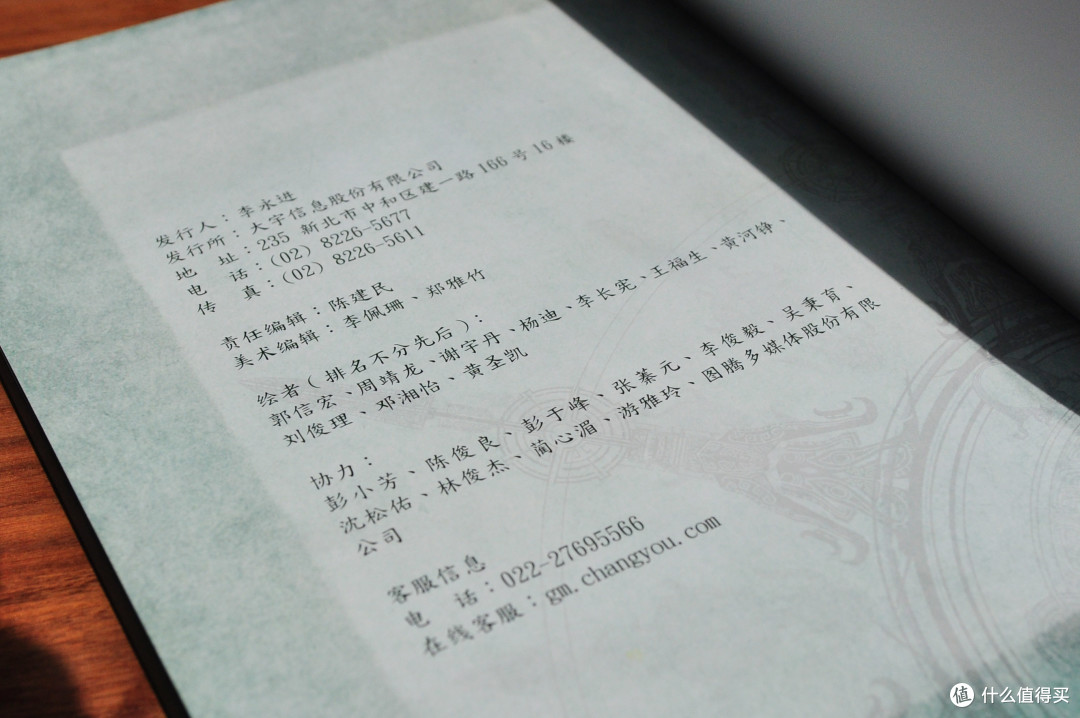 发行人：李永进
发行所：大宇信息股份有限公司
地 址：235 新北市中和区建一路 166 号 16 楼
电 话：(02) 8226-5677
传 真：(02) 8226-5611
责任编辑：陈建民
美术编辑：李佩珊、郑雅竹
绘者（排名不分先后）：
郭信宏、周靖龙、谢宇丹、杨迪、李长宪、王福生、黄河铮、
刘俊理、邓湘怡、黄圣凯
协力：
彭小芳、陈俊良、彭于峰、张蓁元、李俊毅、吴秉育、
沈松佑、林俊杰、蔺心湄、游雅玲、图腾多媒体股份有限
公司
客服信息
电 话：022-27695566
在线客服：gm.changyou.com
值 什么值得买